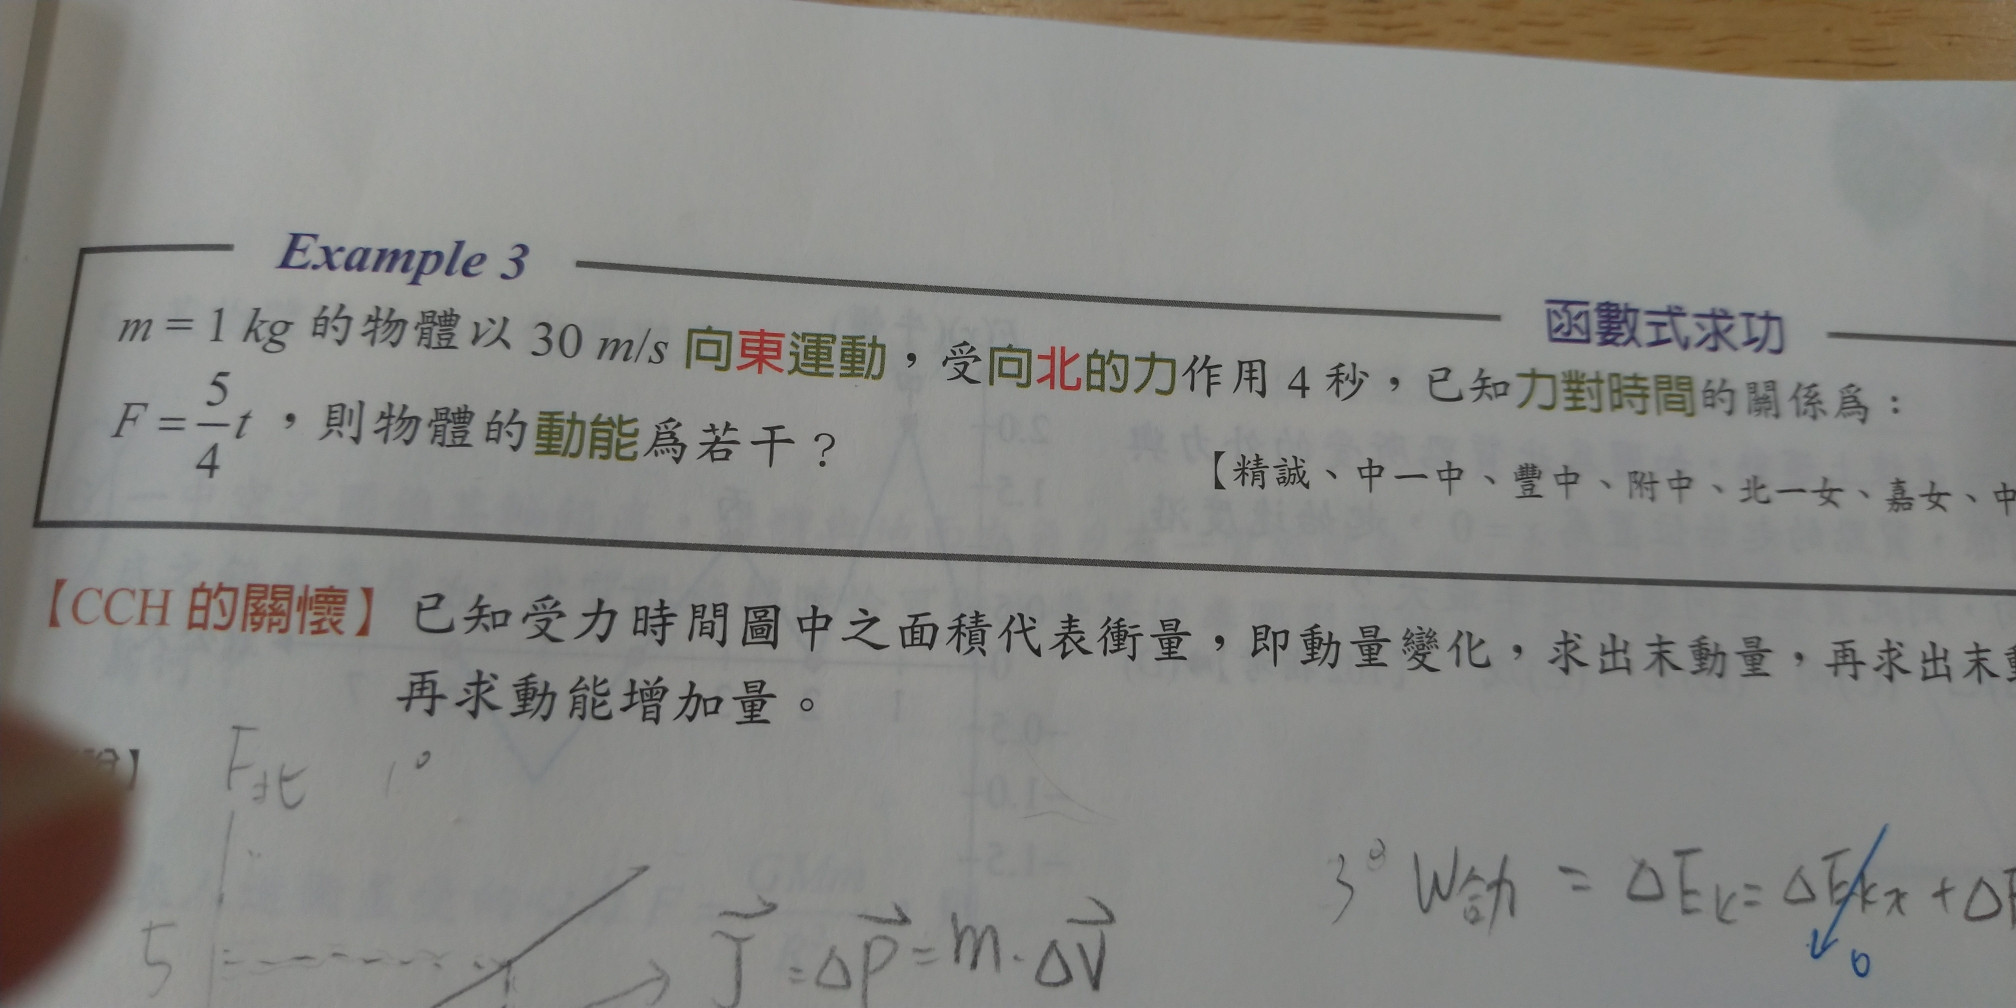 Example 3
函數式求功
m = 1 kg 的物體以 30 m/s 向東運動，受向北的力作用 4 秒，已知力對時間的關係為：
F = 5/4 t，則物體的動能為若干？
【精誠、中一中、豐中、附中、北一女、嘉女、中
【CCH 的關懷】已知受力時間圖中之面積代表衝量，即動量變化，求出末動量，再求出末
再求動能增加量。
F北 1°
3° W合力 = ΔEk = ΔEkx + Δ
0
5
J = ΔP = m·ΔV